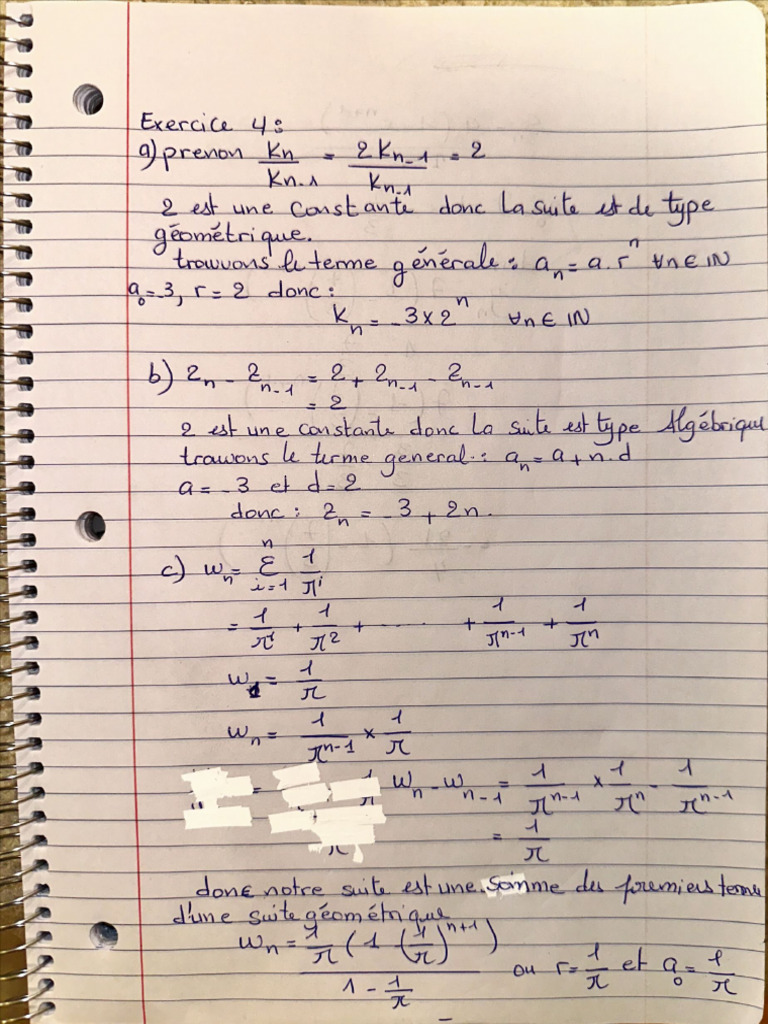 Exercice 4:
a) prenon Kn/Kn-1 = 2Kn-1/Kn-1 = 2
2 est une constante donc la suite est de type
géométrique.
trouvons le terme générale: aₙ = a.rⁿ ∀n∈IN
a₀=-3, r=2 donc:
Kₙ = -3×2ⁿ ∀n∈IN
b) Zₙ - Zₙ₋₁ = 2 + Zₙ₋₁ - Zₙ₋₁
= 2
2 est une constante donc la suite est type Algébrique
trouvons le terme general: aₙ = a + n.d
a = -3 et d=2
donc: Zₙ = -3 + 2n.
c) wₙ = Σ_{i=1}^{n} 1/πⁱ
= 1/π¹ + 1/π² + ....... + 1/πⁿ⁻¹ + 1/πⁿ
w₁ = 1/π
wₙ = 1/πⁿ⁻¹ × 1/π
= wₙ - wₙ₋₁ = 1/πⁿ⁻¹ × 1/πⁿ - 1/πⁿ⁻¹
= 1/π
donc notre suite est une Somme des premiers terms
d'une suite géométrique
wₙ = 1/π (1 (1/π)ⁿ⁺¹) / 1 - 1/π ou r=1/π et a₀=1/π